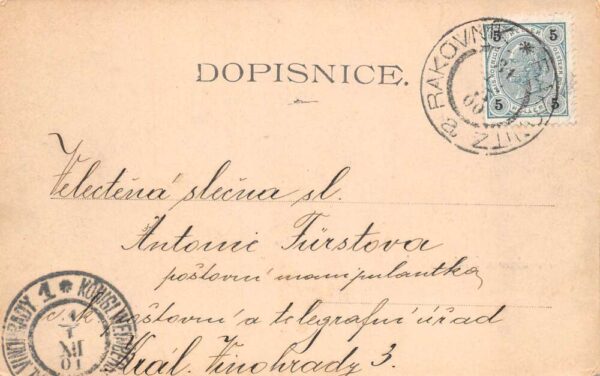 DOPISNICE.
RAKOVNÍK
5 5
5 5
Velectěná slečna sl.
Antonie Fürstova
poštovní manipulantka
c. k. poštovní a telegrafní úřad
Král. Vinohrady 3.
1 * KÖNIGL. WEINBERGE
VINOHRADY
XII
01